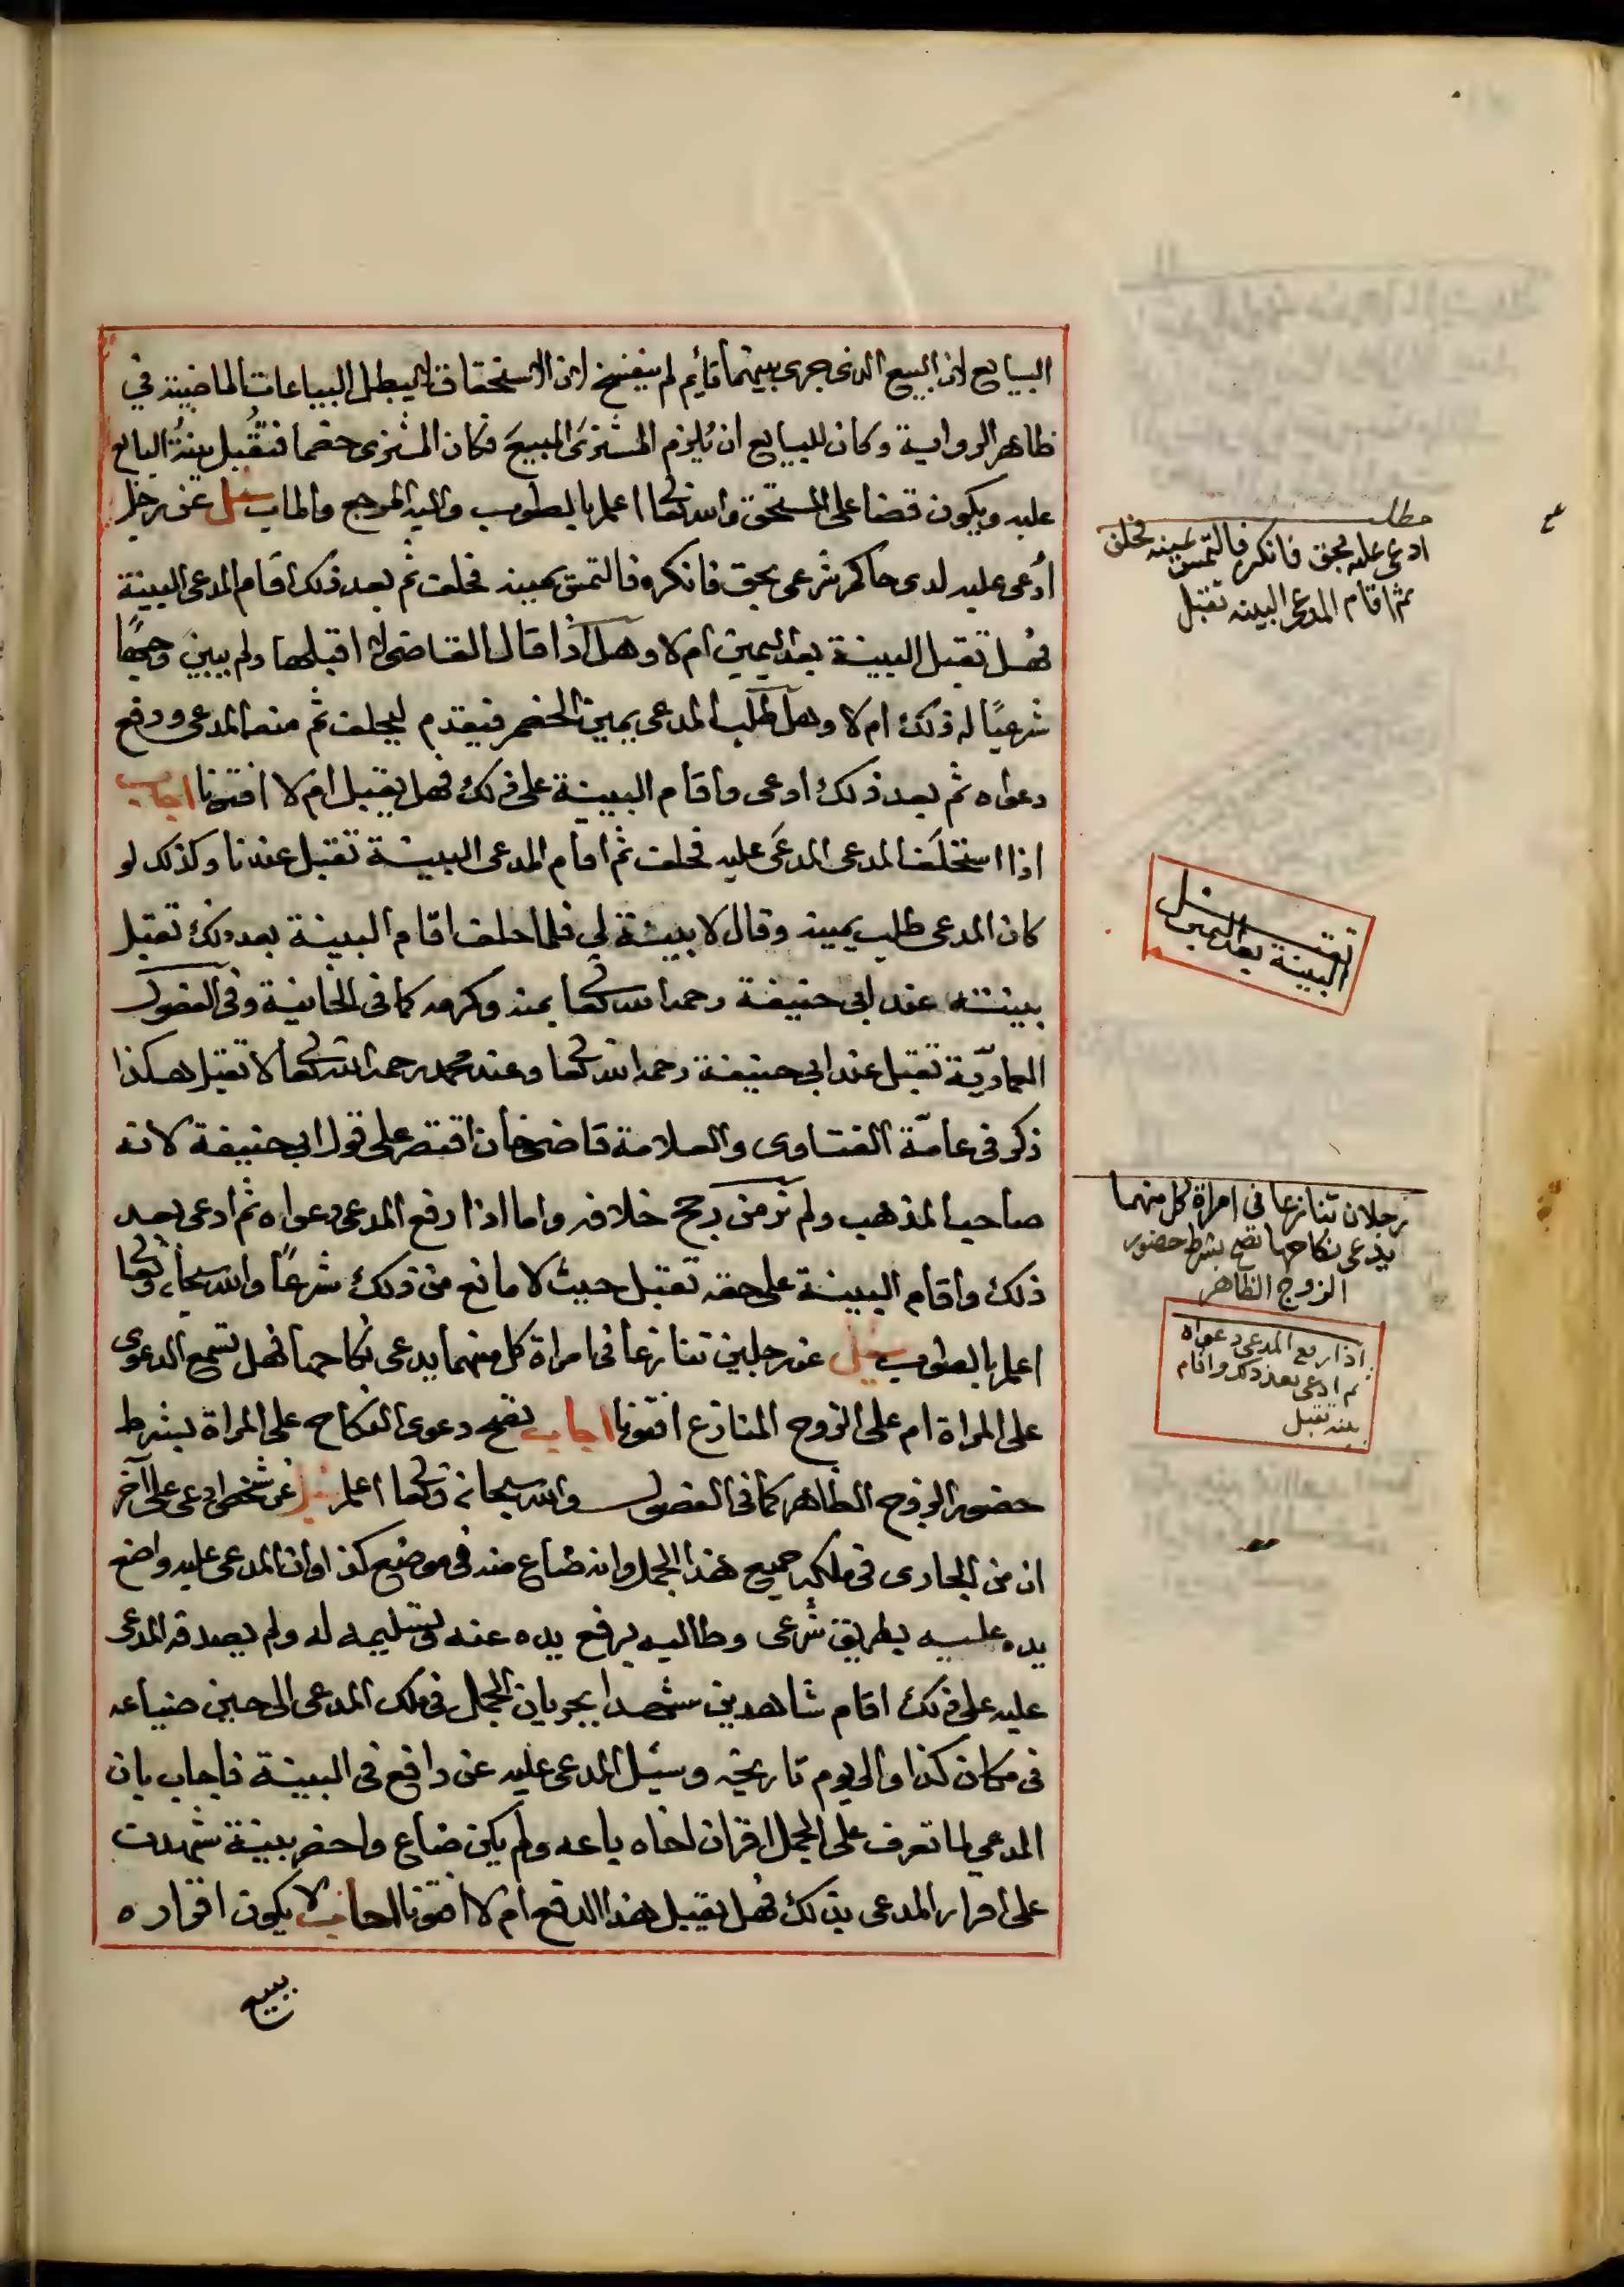 البيايع لان البيع الذى جرى بينهما قائم لم ينفسخ لان الاستحقاق لا يبطل البياعات الماضية في
ظاهر الرواية وكان للبيايع ان يُلزم المشترى المبيعَ فكان المشترى خصما فتُقبل بينةُ البايع
عليه ويكون قضا على المستحق والله تعالى اعلم بالصوب واليه المرجع والماب سئل عن رجل
ادُعى عليه لدى حاكم شرعى بحق فانكره فالتمس يمينه فحلف ثم بعد ذلك اقام المدعى البينة
فهل تقبل البينة بعد اليمين ام لا وهل اذا قال القاضى لا اقبلها ولم يبين وجهًا
شرعيًا له ذلك ام لا وهل طلب المدعى يمين الخصم فتقدم ليحلف ثم منعه المدعى ودفع
دعواه ثم بعد ذلك ادعى واقام البينة على ذلك فهل يقبل ام لا افتونا اجاب
اذا استحلَف المدعى المدعَى عليه فحلف ثم اقام المدعى البينة تقبل عندنا وكذلك لو
كان المدعى طلب يمينه وقال لا بينة لي فلما حلف اقام البينة بعد ذلك تقبل
بينته عند ابى حنيفة رحمه الله تعالى بمنه وكرمه كما فى الخانية وفى الفصول
العماديّة تقبل عند ابى حنيفة رحمه الله تعالى وعند محمد رحمه الله تعالى لا تقبل هكذا
ذكر فى عامّة الفتاوى والعلامة قاضيخان اقتصر على قول ابى حنيفة لانه
صاحب المذهب ولم نر من رجح خلافه واما اذا رفع المدعى دعواه ثم ادعى بعد
ذلك واقام البينة على حقه تقبل حيث لا مانع من ذلك شرعًا والله سبحانه وتعالى
اعلم بالصوب سئل عن رجلين تنازعا فى امراة كل منهما يدعى نكاحها فهل تسمع الدعوى
على المراة ام على الزوج المنازع افتونا اجاب تصح دعوى النكاح على المراة بشرط
حضور الزوج الظاهر كما فى الفصول والله سبحانه وتعالى اعلم سئل عن شخص ادعى على آخر
ان من الجارى فى ملكه جميع هذا الجمل وانه ضاع منه فى موضع كذا وان المدعى عليه واضع
يده عليه بطريق شرعى وطالبه برفع يده عنه وتسليمه له ولم يصدقه المدعى
عليه على ذلك اقام شاهدين شهدا بجريان الجمل فى ملك المدعى الى حين ضياعه
فى مكان كذا والى يوم تاريخه وسئل المدعى عليه عن دافع فى البينة فاجاب بان
المدعي لما تعرف على الجمل اقر ان اخاه باعه ولم يكن ضاع واحضر بينة شهدت
على اقرار المدعى بذلك فهل يقبل هذا الدفع ام لا افتونا اجاب لا يكون اقراره
ببيع
مطلب
ادعى عليه بحق فانكر فالتمس يمينه فحلف
ثم اقام المدعى البينه تقبل
تقبل
البينة بعد اليمين
رجلان تنازعا فى امراة كل منهما
يدعى نكاحها تصح بشرط حضور
الزوج الظاهر
اذا رفع المدعى دعواه
ثم ادعى بعد ذلك واقام
بينه تقبل